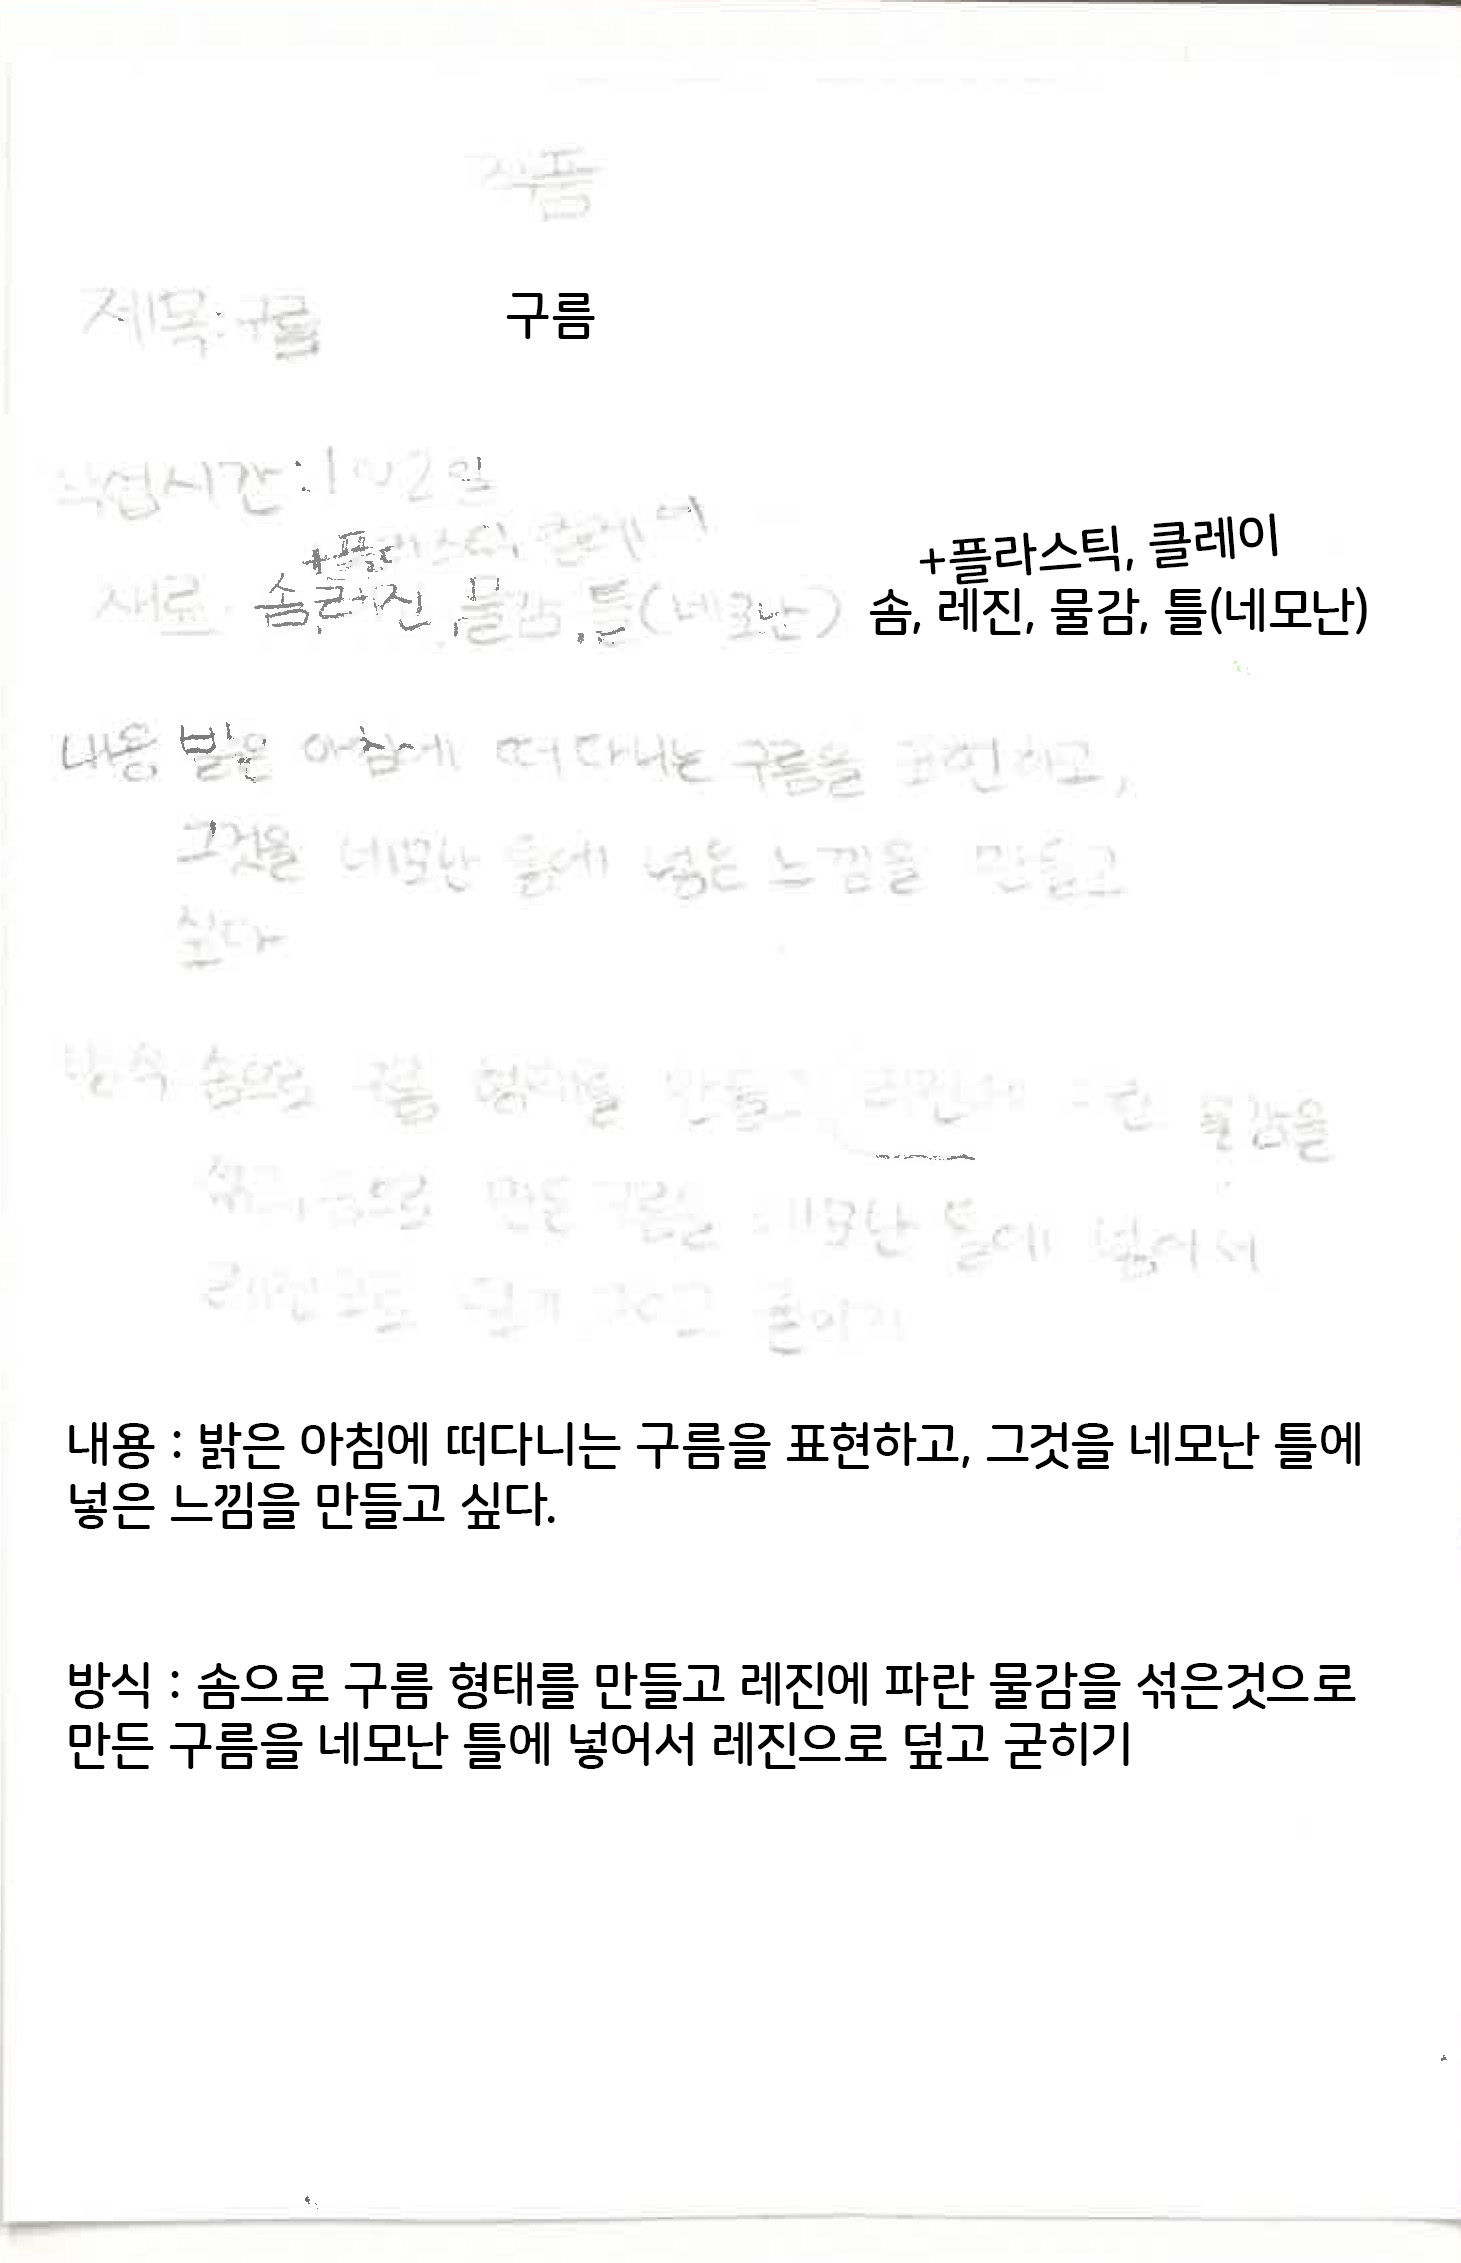 작품
제목:구름 구름
작업시간:1~2일
+플라스틱, 클레이 +플라스틱, 클레이
재료 솜,레진,물감,틀(네모난) 솜, 레진, 물감, 틀(네모난)
내용 밝은 아침에 떠다니는 구름을 표현하고,
그것을 네모난 틀에 넣은 느낌을 만들고
싶다
방식 솜으로 구름 형태를 만들고 레진에 파란 물감을
만든 구름을 네모난 틀에 넣어서
내용 : 밝은 아침에 떠다니는 구름을 표현하고, 그것을 네모난 틀에
넣은 느낌을 만들고 싶다.
방식 : 솜으로 구름 형태를 만들고 레진에 파란 물감을 섞은것으로
만든 구름을 네모난 틀에 넣어서 레진으로 덮고 굳히기